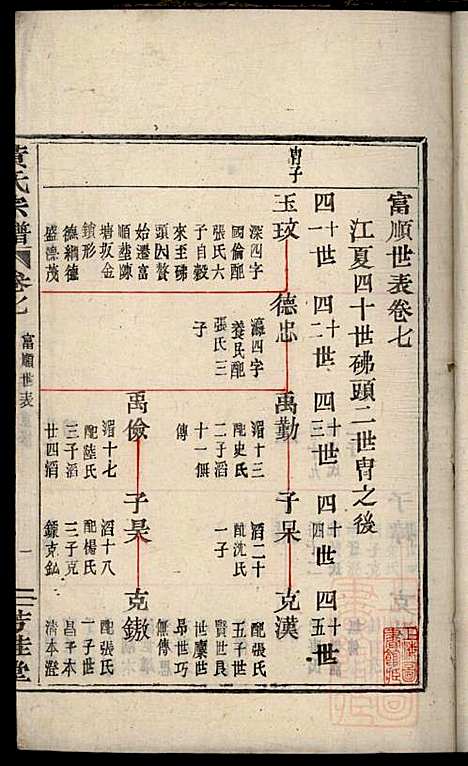 富順世表卷七
江夏四十世砩頭二世冑之後
四十一世
四十二世
四十三世
四十四世
四十五世
冑子
玉玟
深四字
國倫配
張氏六
子自穀
來至砩
頭因贅
始遷富
順蓝陳
塘坂金
鎖形
德綱德
盛濂茂
德忠
瀛四字
養民配
張氏三
子
禹勤
湝十三
配史氏
二子滔
十一無
傳
子杲
滔二十
配沈氏
一子
克漢
配張氏
五子世
賢世良
世麋世
昂世巧
無傳思
禹儉
湝十七
配陸氏
三子滔
廿四滔
子昊
滔十八
配楊氏
三子克
鎵克鈜
克鏾
配張氏
一子世
昌子本
清本澄
黄氏宗譜
卷七
富順世表
一
芳桂堂